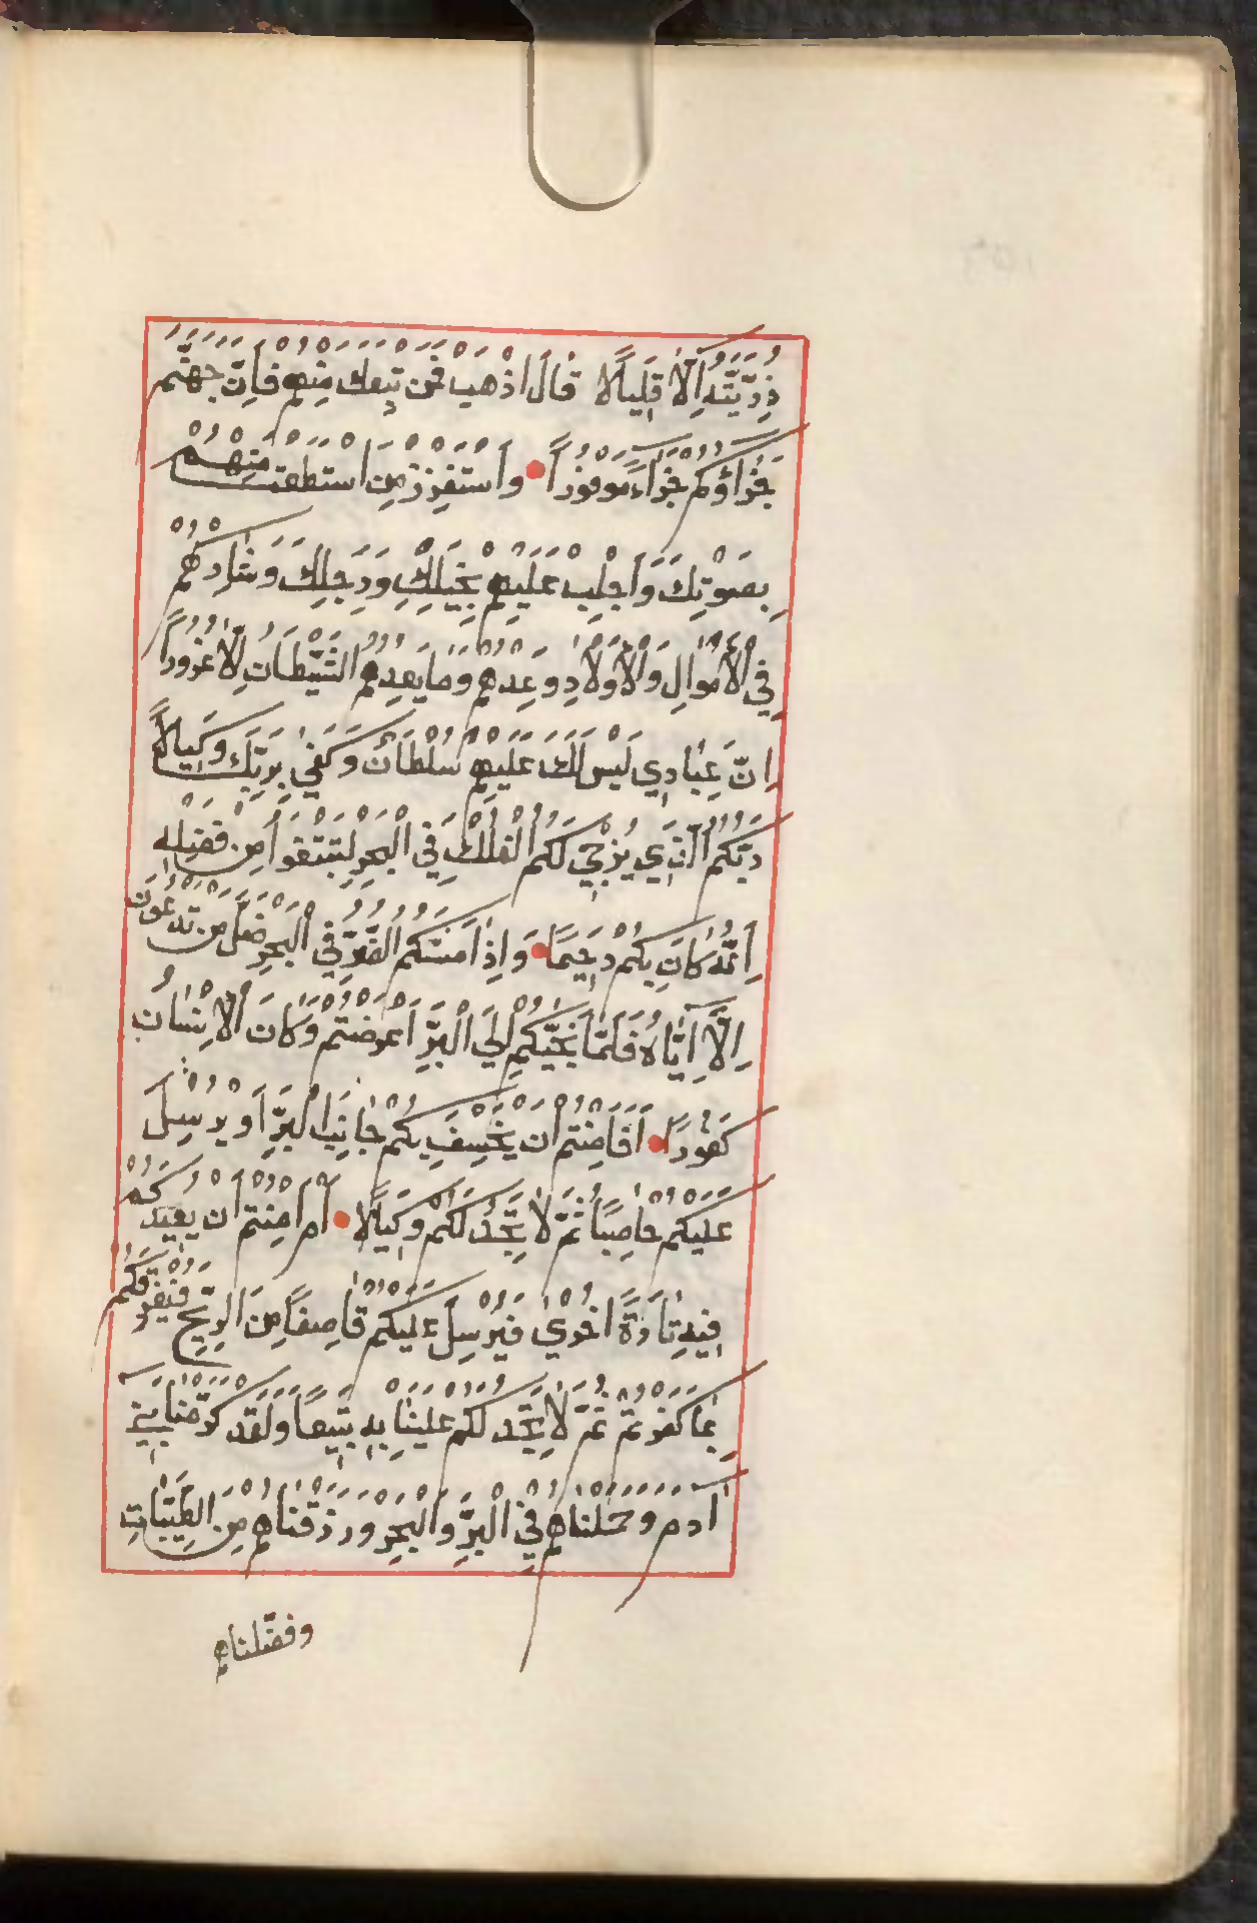 ذُرِّيَّتَهُ اِلَّا قَلِيلًا قَالَ اذْهَبْ فَمَنْ تَبِعَكَ مِنْهُمْ فَاِنَّ جَهَنَّمَ
جَزَاؤُكُمْ جَزَاءً مَوْفُورًا وَاسْتَفْزِزْ مَنِ اسْتَطَعْتَ مِنْهُمْ
بِصَوْتِكَ وَاَجْلِبْ عَلَيْهِمْ بِخَيْلِكَ وَرَجِلِكَ وَشَارِكْهُمْ
فِي الْاَمْوَالِ وَالْاَوْلَادِ وَعِدْهُمْ وَمَا يَعِدُهُمُ الشَّيْطَانُ اِلَّا غُرُورًا
اِنَّ عِبَادِي لَيْسَ لَكَ عَلَيْهِمْ سُلْطَانٌ وَكَفَى بِرَبِّكَ وَكِيلًا
رَبُّكُمُ الَّذِي يُزْجِي لَكُمُ الْفُلْكَ فِي الْبَحْرِ لِتَبْتَغُوا مِنْ فَضْلِهِ
اِنَّهُ كَانَ بِكُمْ رَحِيمًا وَاِذَا مَسَّكُمُ الضُّرُّ فِي الْبَحْرِ ضَلَّ مَنْ تَدْعُونَ
اِلَّا اِيَّاهُ فَلَمَّا نَجَّيكُمْ اِلَى الْبَرِّ اَعْرَضْتُمْ وَكَانَ الْاِنْسَانُ
كَفُورًا اَفَاَمِنْتُمْ اَنْ يَخْسِفَ بِكُمْ جَانِبَ الْبَرِّ اَوْ يُرْسِلَ
عَلَيْكُمْ حَاصِبًا ثُمَّ لَا تَجِدُ لَكُمْ وَكِيلًا اَمْ اَمِنْتُمْ اَنْ يُعِيدَكُمْ
فِيهِ تَارَةً اُخْرَى فَيُرْسِلَ عَلَيْكُمْ قَاصِفًا مِنَ الرِّيحِ فَيُغْرِقَكُمْ
بِمَا كَفَرْتُمْ ثُمَّ لَا تَجِدُ لَكُمْ عَلَيْنَا بِهِ تَبِيعًا وَلَقَدْ كَرَّمْنَا بَنِي
آدَمَ وَحَمَلْنَاهُمْ فِي الْبَرِّ وَالْبَحْرِ وَرَزَقْنَاهُمْ مِنَ الطَّيِّبَاتِ
وفضّلناهم